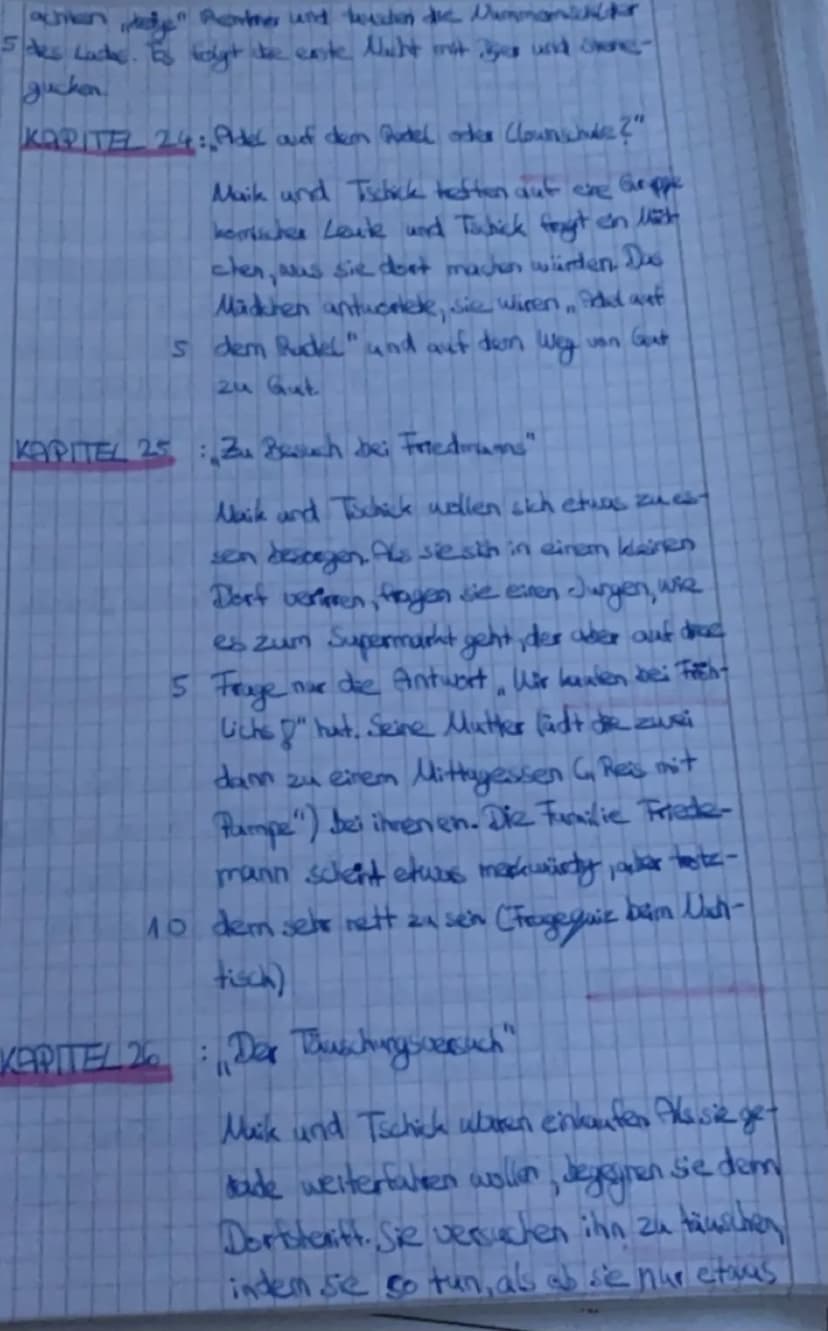 Rentner und die
5 des Lachs. Es folgt die erste Nacht mit und
gucken.
KAPITEL 24: „Adel auf dem Radel oder Clownschule?"
Maik und Tschick treffen auf eine Gruppe
komischer Leute und Tschick fragt ein Mäd-
chen, was sie dort machen würden. Das
Mädchen antwortete, sie wären „Adel auf
5 dem Radel" und auf dem Weg von Gut
zu Gut.
KAPITEL 25 : „Zu Besuch bei Friedmanns"
Maik und Tschick wollen sich etwas zu es-
sen besorgen. Als sie sich in einem kleinen
Dorf verirren, fragen sie einen Jungen, wie
es zum Supermarkt geht, der aber auf die
5 Frage nur die Antwort „Wir kaufen bei Fröh-
lichs" hat. Seine Mutter lädt die zwei
dann zu einem Mittagessen („Reis mit
Pampe") bei ihnen en. Die Familie Friede-
mann scheint etwas merkwürdig, aber trotz-
10 dem sehr nett zu sein (Fragequiz beim Nach-
tisch)
KAPITEL 26 : „Der Täuschungsversuch"
Maik und Tschick waren einkaufen. Als sie ge-
rade weiterfahren wollen, begegnen sie dem
Dorfsheriff. Sie versuchen ihn zu täuschen,
indem sie so tun, als ob sie nur etwas